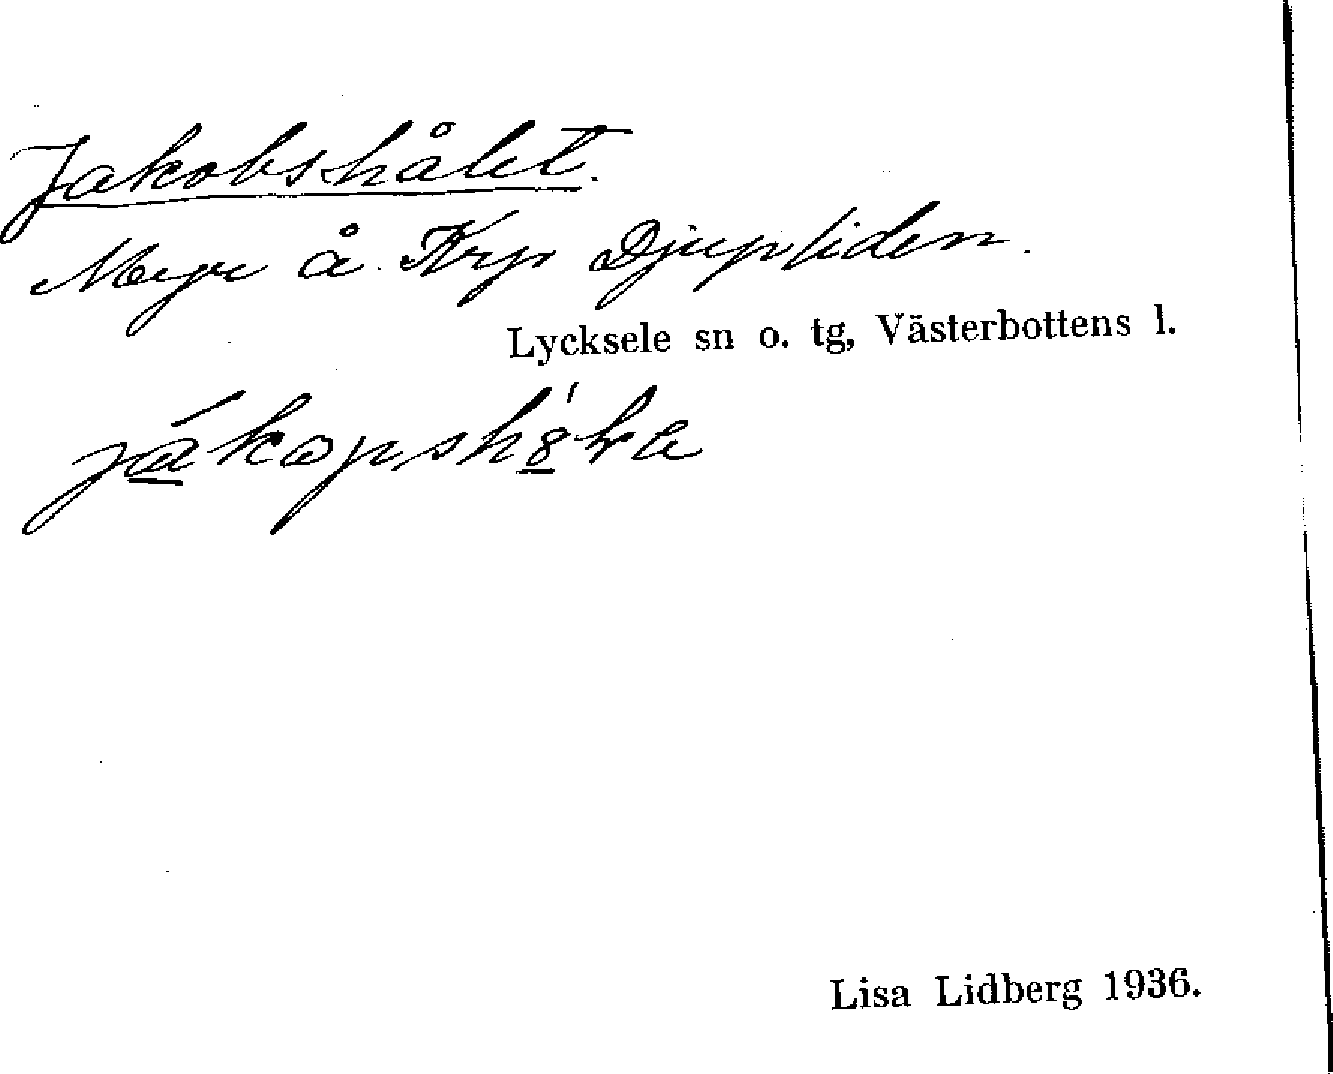 Jakobshålet.
Myr å Krp Djupliden.
Lycksele sn o. tg, Västerbottens l.
Lisa Lidberg 1936.